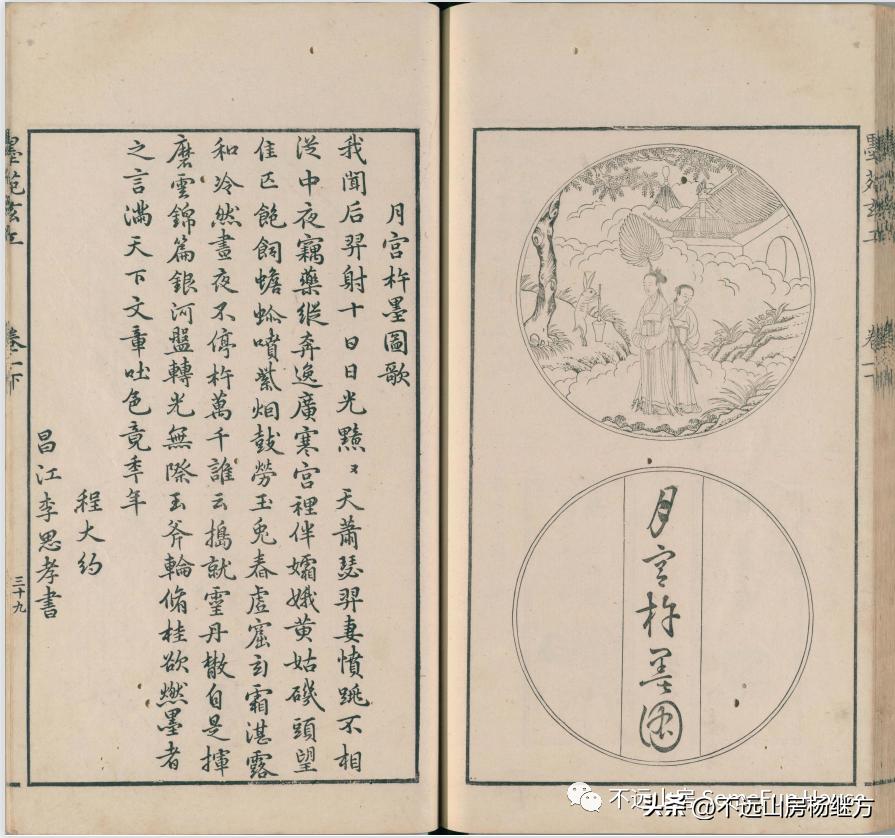 月宮杵墨圖
墨苑玄工 卷一下
月宮杵墨圖歌
我聞后羿射十日日光黯〻天蕭瑟羿妻憤跳不相
從中夜竊藥縱奔逸廣寒宮裡伴孀娥黃姑磯頭望
佳匹飽飼蟾蜍噴紫烟鼓勞玉兔舂虛窟玄霜湛露
和泠然晝夜不停杵萬千誰云搗就靈丹散自是揮
磨雲錦篇銀河盤轉光無際玉斧輪脩桂欲燃墨者
之言滿天下文章吐色竟季年
程大約
昌江李思孝書
墨苑玄工 卷一下
三十九
不远山房
头条 @不远山房杨继方